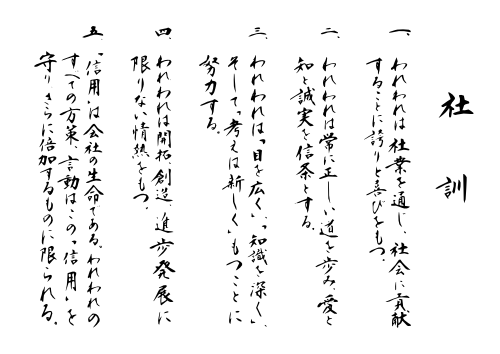 社訓
一、われわれは社業を通し、社会に貢献
することに誇りと喜びをもつ。
二、われわれは常に正しい道を歩み、愛と
知と誠実を信条とする。
三、われわれは「目を広く」、「知識を深く」、
そして「考えは新しく」もつことに
努力する。
四、われわれは開拓、創造、進歩発展に
限りない情熱をもつ。
五、「信用」は会社の生命である。われわれの
すべての方策、言動はこの「信用」を
守りさらに倍加するものに限られる。